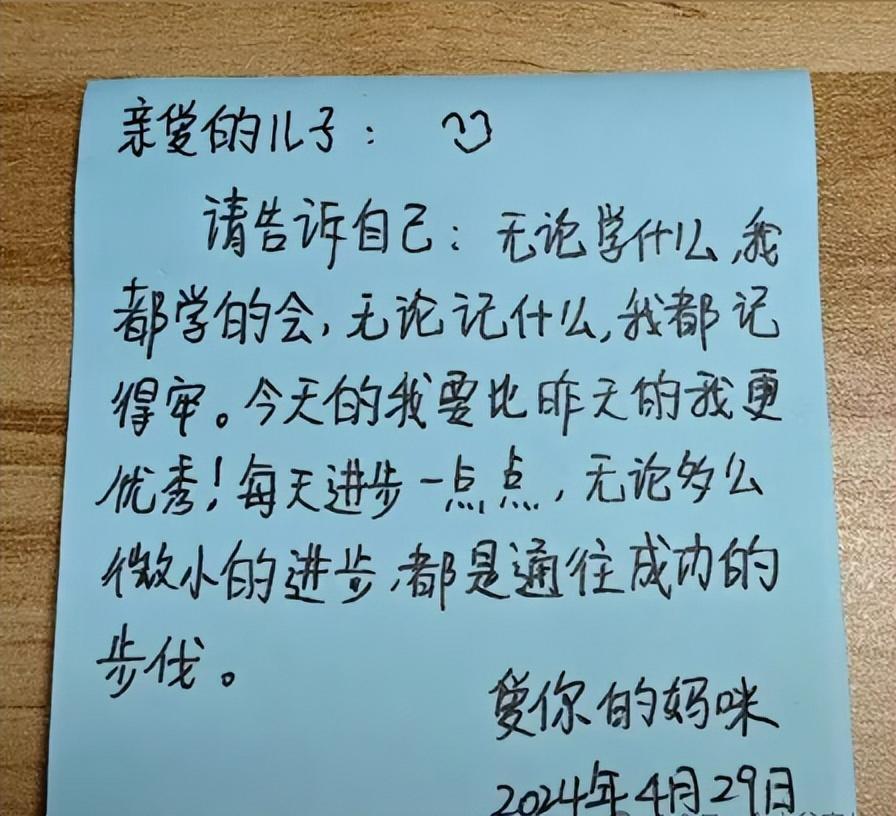 亲爱的儿子：
请告诉自己：无论学什么，我
都学的会，无论记什么，我都记
得牢。今天的我要比昨天的我更
优秀！每天进步一点点，无论多么
微小的进步，都是通往成功的
步伐。
爱你的妈咪
2024年4月29日